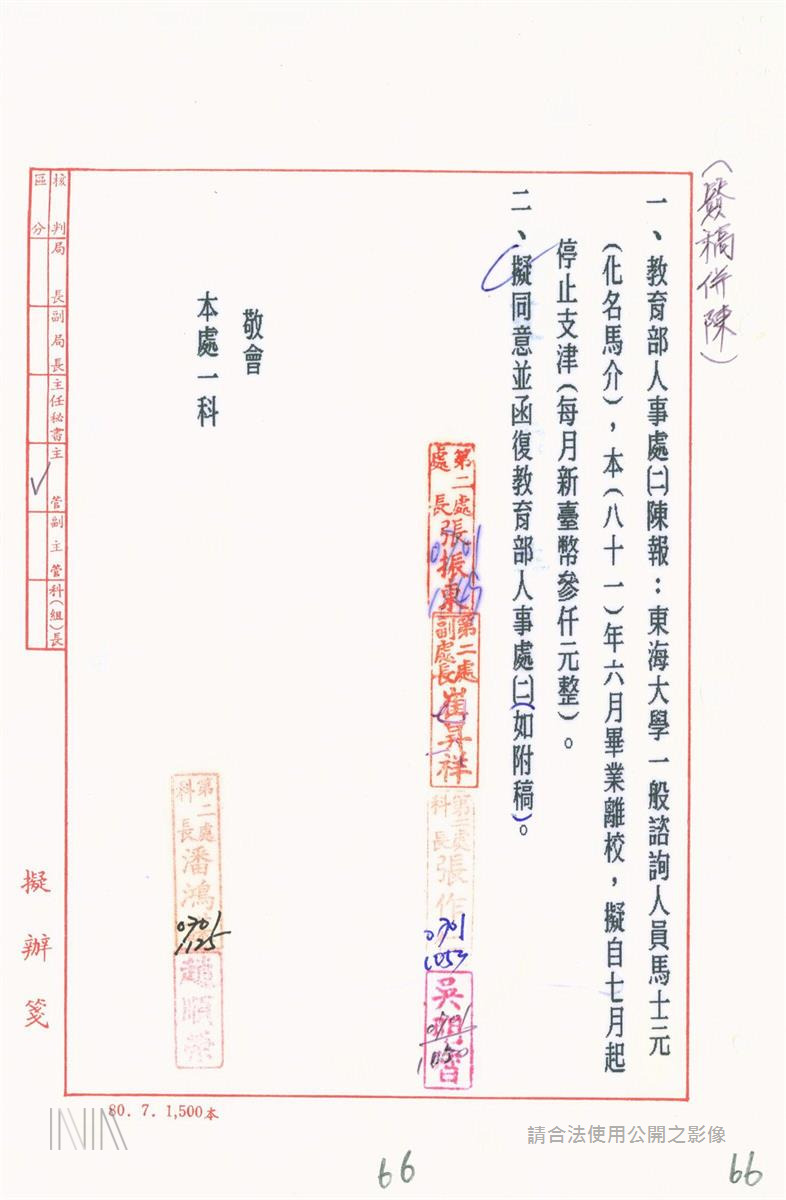 （繕稿併陳）
一、教育部人事處㈡陳報：東海大學一般諮詢人員馬士元
（化名馬介），本（八十一）年六月畢業離校，擬自七月起
停止支津（每月新臺幣參仟元整）。
二、擬同意並函復教育部人事處㈡（如附稿）。
第二處
處長
張振東
第二處
副處長
崔昇祥
第二處
科長
張作
0701
1053
吳明
0701
1050
敬會
本處一科
第二處
科長
潘鴻
0701
1125
趙順榮
核判
區分
局長
副局長
主任秘書
主管
副主管
科（組）長
擬辦箋
80. 7. 1,500本
請合法使用公開之影像
66
66